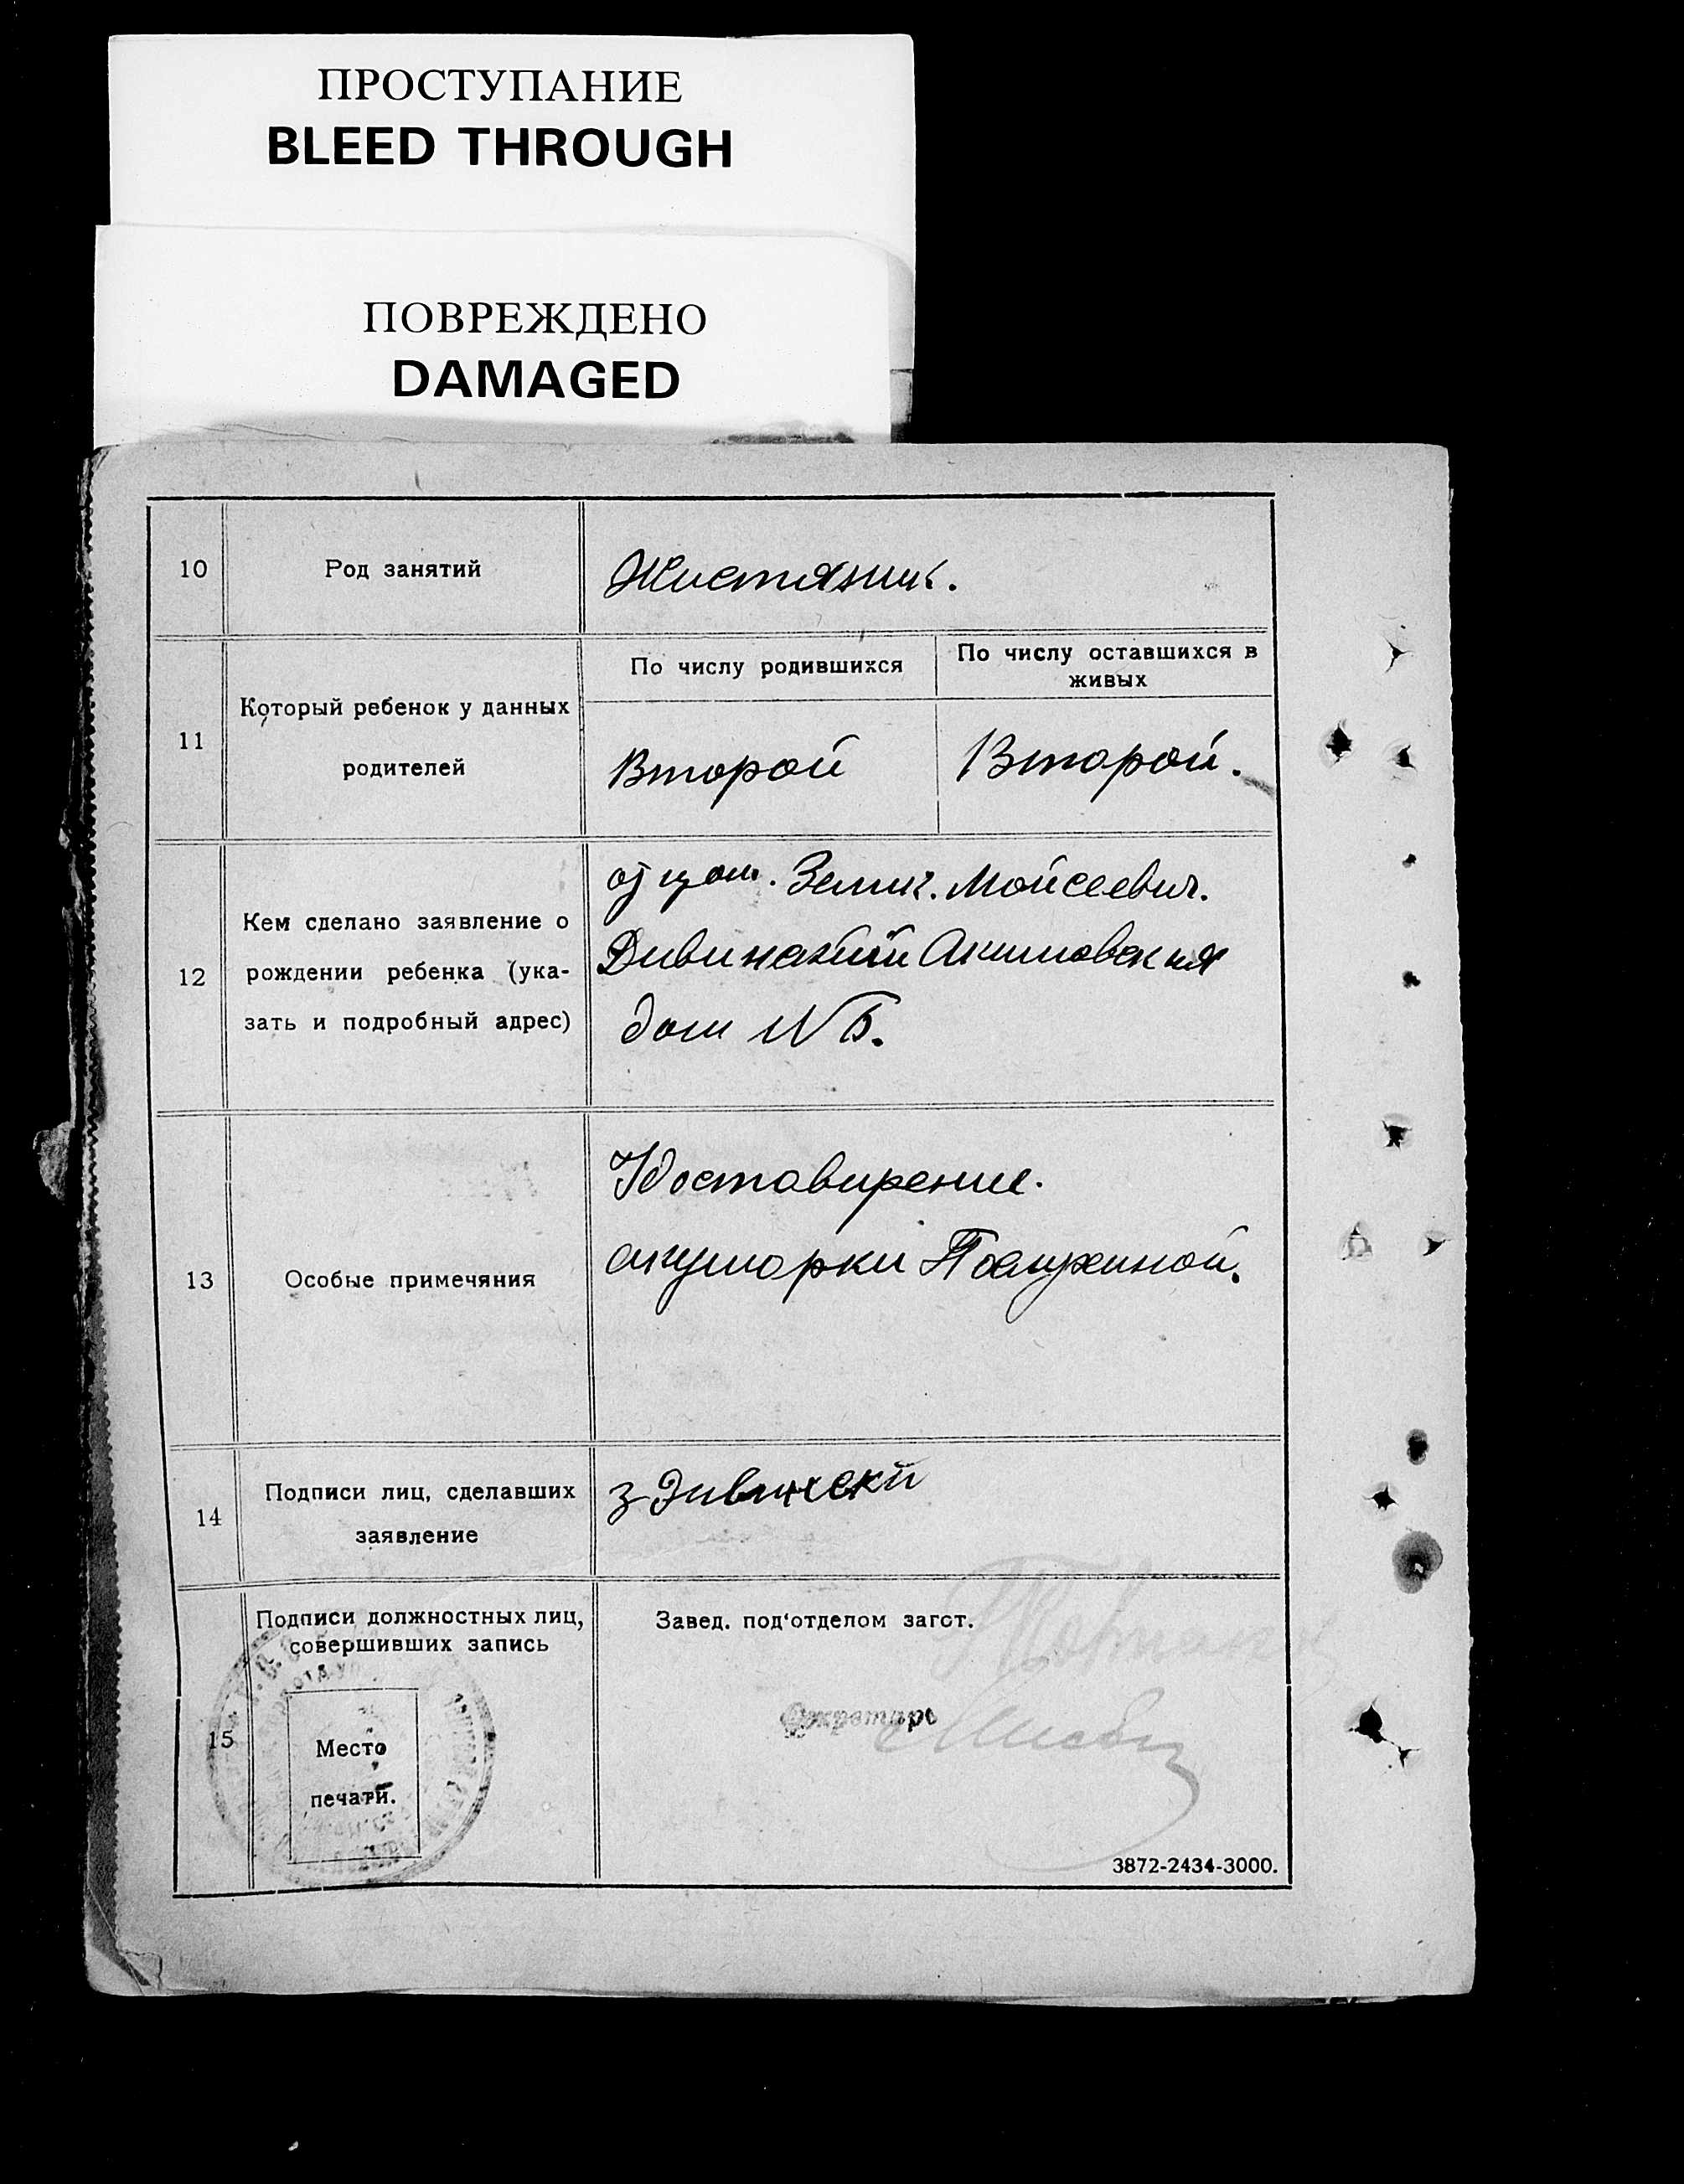 ПРОСТУПАНИЕ
BLEED THROUGH
ПОВРЕЖДЕНО
DAMAGED
10
Род занятий
Жистяник.
11
Который ребенок у данных
родителей
По числу родившихся
По числу оставшихся в
живых
Второй
Второй.
12
Кем сделано заявление о
рождении ребенка (ука-
зать и подробный адрес)
отцом. Зелик. Мойсеевич.
Дивинский Акимовская
дом №5.
13
Особые примечяния
Удоставирение.
акушорки
14
Подписи лиц, сделавших
заявление
З Дивински
15
Подписи должностных лиц,
совершивших запись
Место
печати.
Завед. под'отделом загст.
Секретарь
3872-2434-3000.